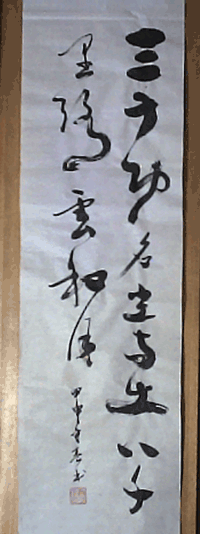 三十功名尘与土八千
里路雲和月
甲申